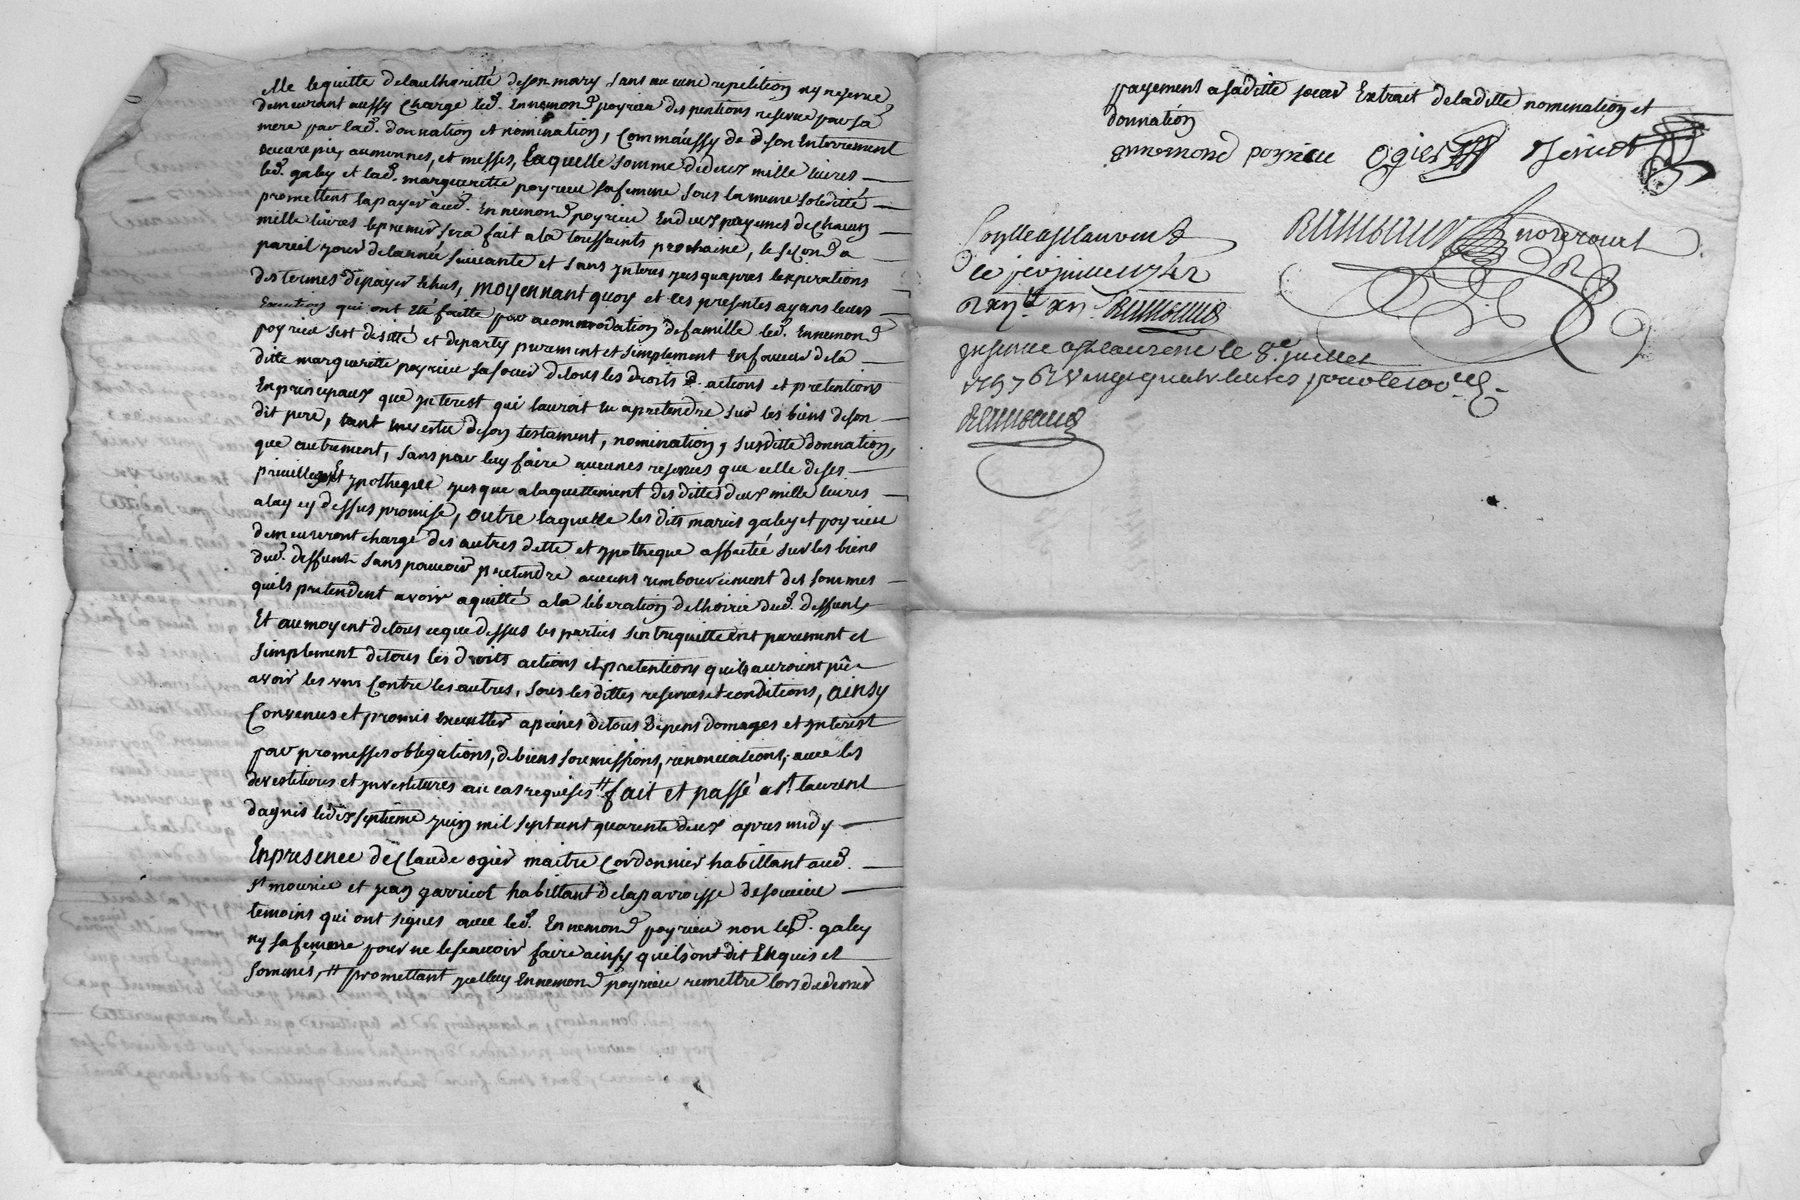 elle le quitte delauthoritté deson mary sans aucune repetition ny reserve
demeurant aussy chargé led. Ennemond poyrieu des pentions reservé par sa
mere par lad. donnation et nomination, comm'aussy de son Enterrement
œuvre pie, aumonnes, et messes, Laquelle somme de deux mille livres
led. galey et lad. marguerette poyrieu sa femme sous la meme solidité
promettent la payer aud. Ennemond poyrieu En deux payemes de chacun
mille livres le premier sera fait a la toussaints prochaine, le second a
pareil jour de lannée suivante et sans ynteres jusquapres lexpirations
des termes depayer Echus, moyennant quoy et ces presentes ayans leurs
Executions qui ont Eté faitte par acommodation defamille led. Ennemond
poyrieu sest desitté et departy purement et simplement En faveur de la
ditte marguerette poyrieu sa sœur detous les droits actions et pretentions
En principaux que ynterest qui lauroit eu apretendre sur les biens deson
dit pere, tant en vertu deson testament, nomination, susditte donnation,
que autrement, sans par luy faire aucunes reserves que celle deses
privilleges Et ypotheque jusque alaquittement des dittes deux mille livres
aluy cy dessus promise, outre laquelle les dits mariés galey et poyrieu
demeureront chargé des autres dette et ypotheque affectée sur les biens
dud. deffunt sans pouvoir pretendre aucuns rembourcement des sommes
quils pretendent avoir aquitté a la liberation delhoirie dud. deffunt
Et aumoyent detous ceque dessus les parties sentrequittent purement et
simplement detous les droits actions et pretentions quils auroient pû
avoir les uns contre les autres, sous les dittes reserves et conditions, ainsy
Convenus et promis Executter a peines detous Depens domages et ynterest
par promesses obligations, de biens soumissions, renonciations, avec les
devestitures et ynvestitures au cas requises # fait et passé a St laurent
dagnis le dix septieme juin mil sept cent quarente deux apres midy
En presence de Claude ogier maitre Cordonnier habittant aud.
St mourice et jean jarricot habittant de la parroisse de soucieu
temoins qui ont signés avec led. Ennemond poyrieu non led. galey
ny sa femme pour ne lesçavoir faire ainsy quils ont dit Enquis et
sommés, # promettant yceluy Ennemond poyrieu remettre lors du dernier
payement a saditte sœur Extrait deladitte nomination et
donnation
annemond poyrieu Ogier Jaricot
Raimbaud notr royal
Controllé a St laurent
le juillet 1742
Raimbaud
Insinué a St laurent le 8e juillet
vingt quatre livres pour le 100e
Raimbaud